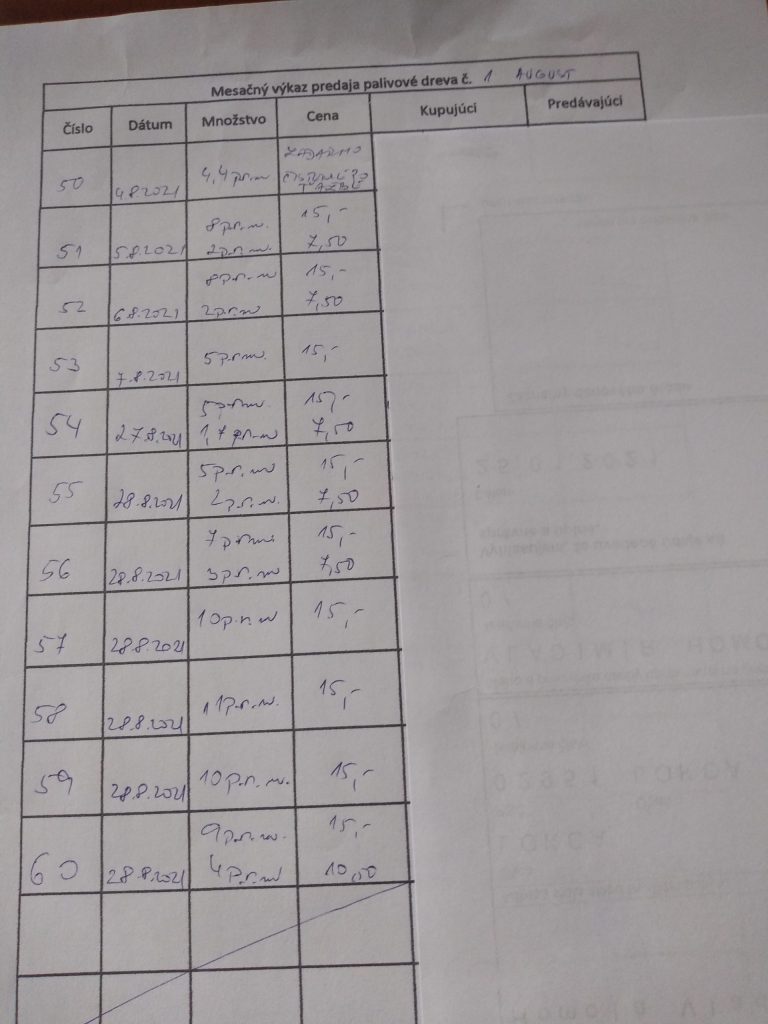 Mesačný výkaz predaja palivové dreva č. 1 AUGUST
Číslo Dátum Množstvo Cena Kupujúci Predávajúci
50 4.8.2021 4,4 p.r.m ZDARMO
51 5.8.2021 8 p.r.m. 15,-
2 p.r.m. 7,50
52 6.8.2021 8 p.r.m 15,-
2 p.r.m 7,50
53 7.8.2021 5 p.r.m. 15,-
54 27.8.2021 5 p.r.m. 15,-
1,7 p.r.m 7,50
55 28.8.2021 5 p.r.m 15,-
2 p.r.m. 7,50
56 28.8.2021 7 p.r.m 15,-
3 p.r.m 7,50
57 28.8.2021 10 p.r.m 15,-
58 28.8.2021 11 p.r.m. 15,-
59 28.8.2021 10 p.r.m. 15,-
60 28.8.2021 9 p.r.m. 15,-
4 p.r.m 10,50